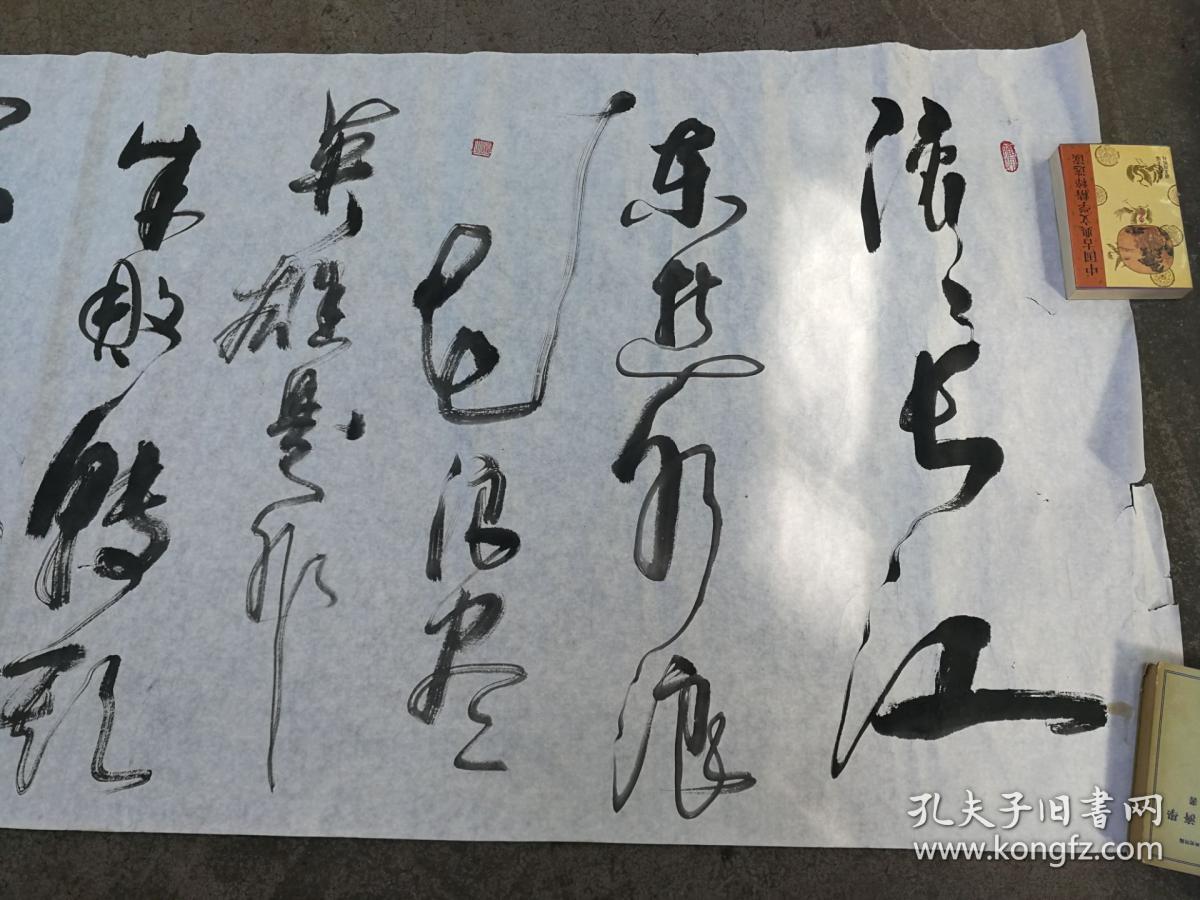 滚滚长江
东逝水浪
花淘尽
英雄是非
成败转头
中国古典文学精粹选读
孔夫子旧书网
www.kongfz.com